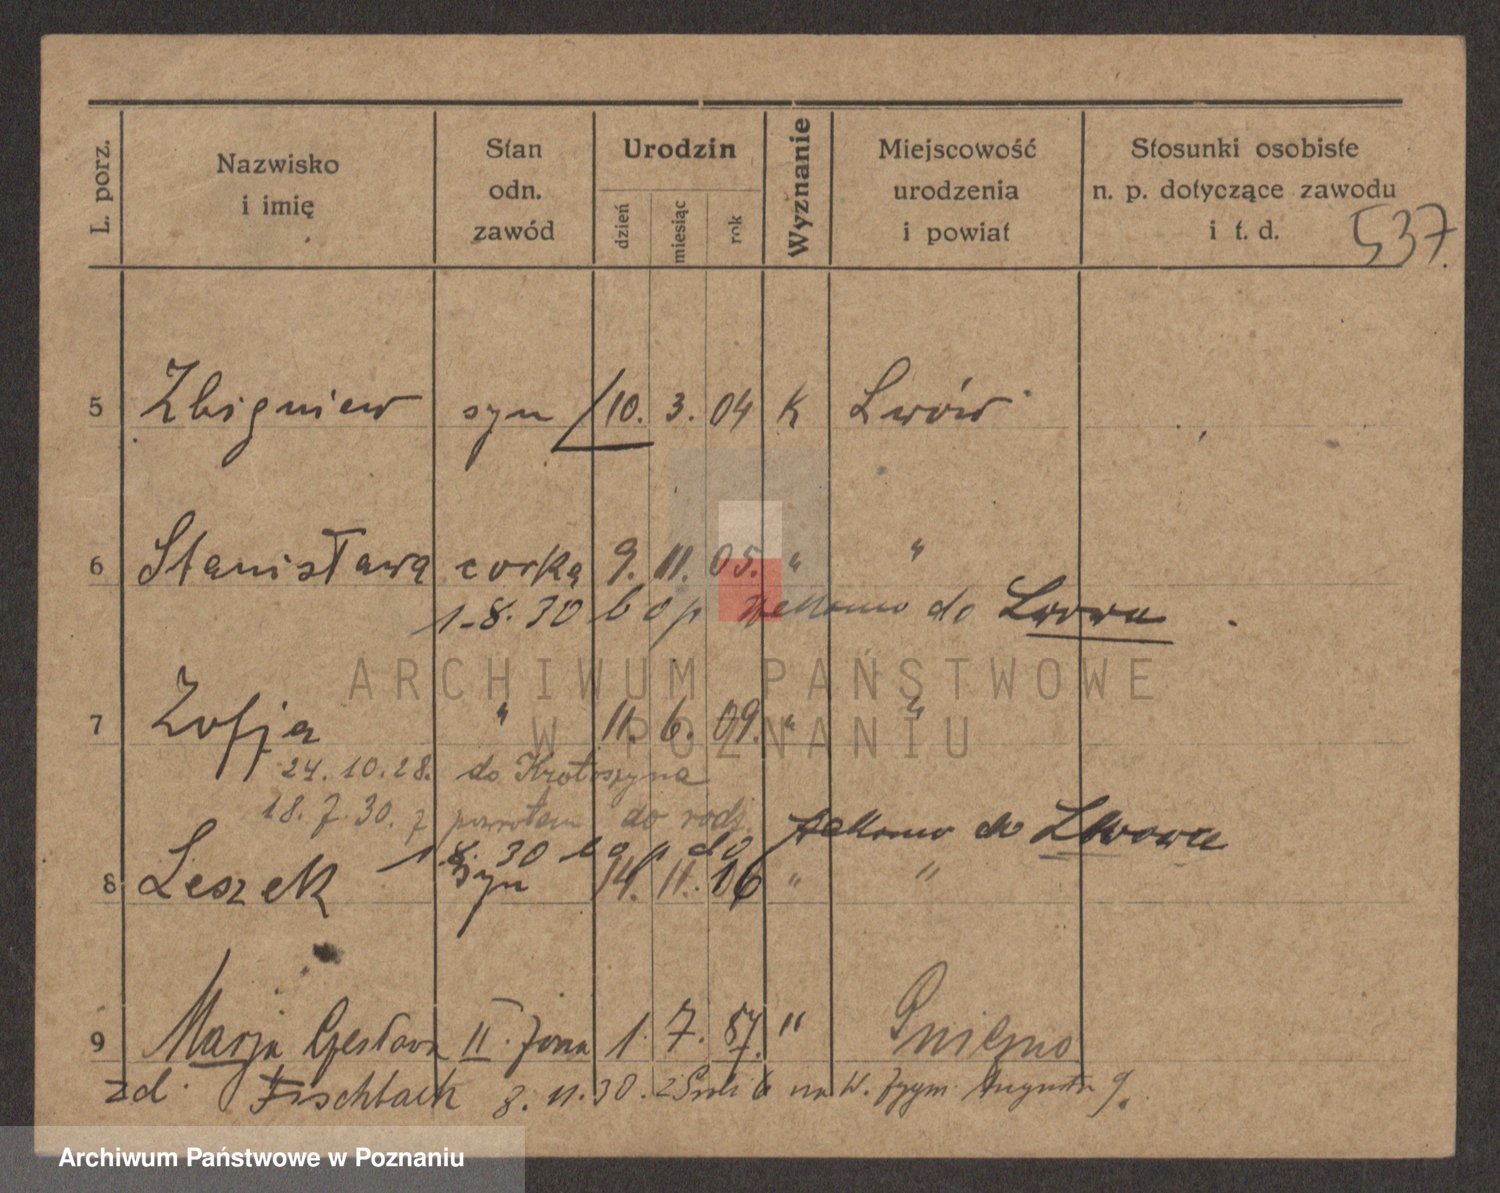 L. porz.
Nazwisko
i imię
Stan
odn.
zawód
Urodzin
dzień
miesiąc
rok
Wyznanie
Miejscowość
urodzenia
i powiat
Stosunki osobiste
n. p. dotyczące zawodu
i t. d.
537
5 Zbigniew syn 10. 3. 04 K Lwów
6 Stanisława corka 9. 11. 05. " "
1.8.30 do Lwowa
7 Zofja " 11. 6. 09. " "
24.10.28. do Krotoszyna
18.7.30. z powrotem do rodz.
30 do do Lwowa
8 Leszek syn 14. 11. 16 " "
9 Marja Czesława II. żona 1. 7. 87. " Gniezno
zd. Fischbach 8.11.30. na W. Zygm. Augusta 9.
ARCHIWUM PAŃSTWOWE
W POZNANIU
Archiwum Państwowe w Poznaniu